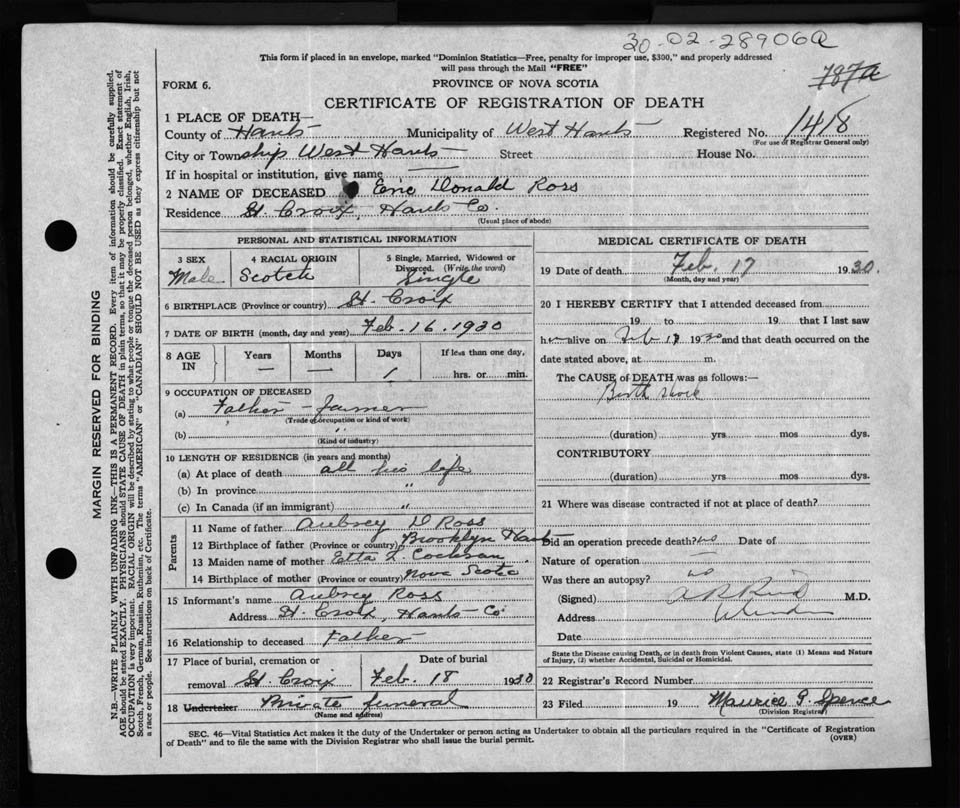 30-02-28906Q
This form if placed in an envelope, marked "Dominion Statistics—Free, penalty for improper use, $300," and properly addressed
will pass through the Mail "FREE"
787a
FORM 6.
PROVINCE OF NOVA SCOTIA
CERTIFICATE OF REGISTRATION OF DEATH
1 PLACE OF DEATH—
County of Hants Municipality of West Hants Registered No. 1418
(For use of Registrar General only)
City or Township West Hants Street House No.
If in hospital or institution, give name
2 NAME OF DECEASED Eric Donald Ross
Residence St. Croix, Hants Co.
(Usual place of abode)
PERSONAL AND STATISTICAL INFORMATION
3 SEX 4 RACIAL ORIGIN 5 Single, Married, Widowed or
Divorced. (Write the word)
Male Scotch Single
6 BIRTHPLACE (Province or country) St. Croix
7 DATE OF BIRTH (month, day and year) Feb. 16. 1930
8 AGE IN Years Months Days If less than one day,
— — 1 hrs. or min.
9 OCCUPATION OF DECEASED
(a) Father - farmer
(Trade or occupation or kind of work)
(b) "
(Kind of industry)
10 LENGTH OF RESIDENCE (in years and months)
(a) At place of death all his life
(b) In province "
(c) In Canada (if an immigrant) "
Parents
11 Name of father Aubrey D Ross
12 Birthplace of father (Province or country) Brooklyn Hants
13 Maiden name of mother Etta L. Cochran
14 Birthplace of mother (Province or country) Nova Scotia
15 Informant's name Aubrey Ross
Address St. Croix, Hants Co.
16 Relationship to deceased Father
17 Place of burial, cremation or Date of burial
removal St. Croix Feb. 18 1930
18 Undertaker Private funeral
(Name and address)
MEDICAL CERTIFICATE OF DEATH
19 Date of death Feb. 17 1930.
(Month, day and year)
20 I HEREBY CERTIFY that I attended deceased from
19 to 19 that I last saw
him alive on Feb 17 1930 and that death occurred on the
date stated above, at m.
The CAUSE of DEATH was as follows:—
Birth
(duration) yrs mos dys.
CONTRIBUTORY
(duration) yrs mos dys.
21 Where was disease contracted if not at place of death?
Did an operation precede death? no Date of
Nature of operation —
Was there an autopsy? no
(Signed) M.D.
Address Windsor
Date
State the Disease causing Death, or in death from Violent Causes, state (1) Means and Nature
of Injury, (2) whether Accidental, Suicidal or Homicidal.
22 Registrar's Record Number
23 Filed 19 Maurice G. Spence
(Division Registrar)
SEC. 46—Vital Statistics Act makes it the duty of the Undertaker or person acting as Undertaker to obtain all the particulars required in the "Certificate of Registration
of Death" and to file the same with the Division Registrar who shall issue the burial permit.
(OVER)
MARGIN RESERVED FOR BINDING
N.B.—WRITE PLAINLY WITH UNFADING INK—THIS IS A PERMANENT RECORD. Every item of information should be carefully supplied.
AGE should be stated EXACTLY. PHYSICIANS should STATE CAUSE OF DEATH in plain terms, so that it may be properly classified. Exact statement of
OCCUPATION is very important. RACIAL ORIGIN will be described by stating to what people or tongue the deceased person belonged, whether English, Irish,
Scotch, French, German, Russian, Ruthenian, etc. The terms "AMERICAN" or "CANADIAN" SHOULD NOT BE USED as they express citizenship but not
a race or people. See instructions on back of Certificate.